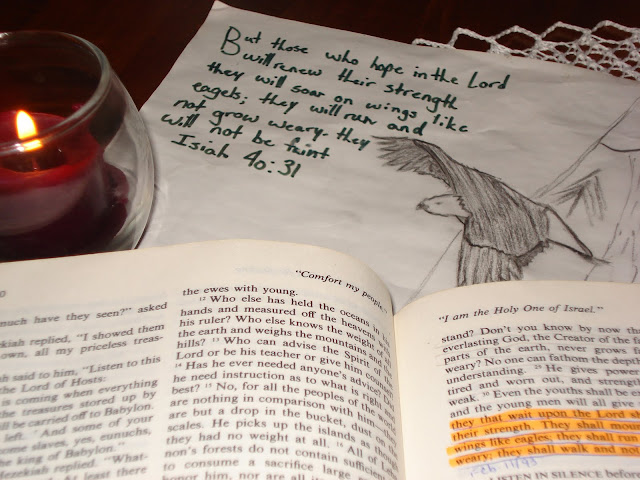 But those who hope in the Lord
will renew their strength
they will soar on wings like
eagels; they will run and
not grow weary. they
will not be faint
Isiah 40:31
"Comfort my people"
much have they seen?" asked
ekiah replied, "I showed them
own, all my priceless treas-
h said to him, "Listen to this
the Lord of Hosts:
is coming when everything
the treasures stored up by
ill be carried off to Babylon.
left. And some of your
come slaves, yes, eunuchs,
he king of Babylon."
Hezekiah replied. "What-
At least there
the ewes with young.
12 Who else has held the oceans in
hands and measured off the heavens with
his ruler? Who else knows the weight of
the earth and weighs the mountains and
hills? 13 Who can advise the Spirit of
Lord or be his teacher or give him counsel?
14 Has he ever needed anyone's advice?
he need instruction as to what is right
best? 15 No, for all the peoples of the
are nothing in comparison with him
are but a drop in the bucket, dust on
scales. He picks up the islands as
they had no weight at all. All of
non's forests do not contain sufficient
to consume a sacrifice large
honor him, nor are all
"I am the Holy One of Israel."
stand? Don't you know by now
everlasting God, the Creator of the
parts of the earth, never grows
weary? No one can fathom the depth
understanding. 29 He gives power
tired and worn out, and strength
weak. 30 Even the youths shall be
and the young men will all give
they that wait upon the Lord
their strength. They shall mount
wings like eagles; they shall run
weary; they shall walk and not
Feb 11/93
LISTEN IN SILENCE before